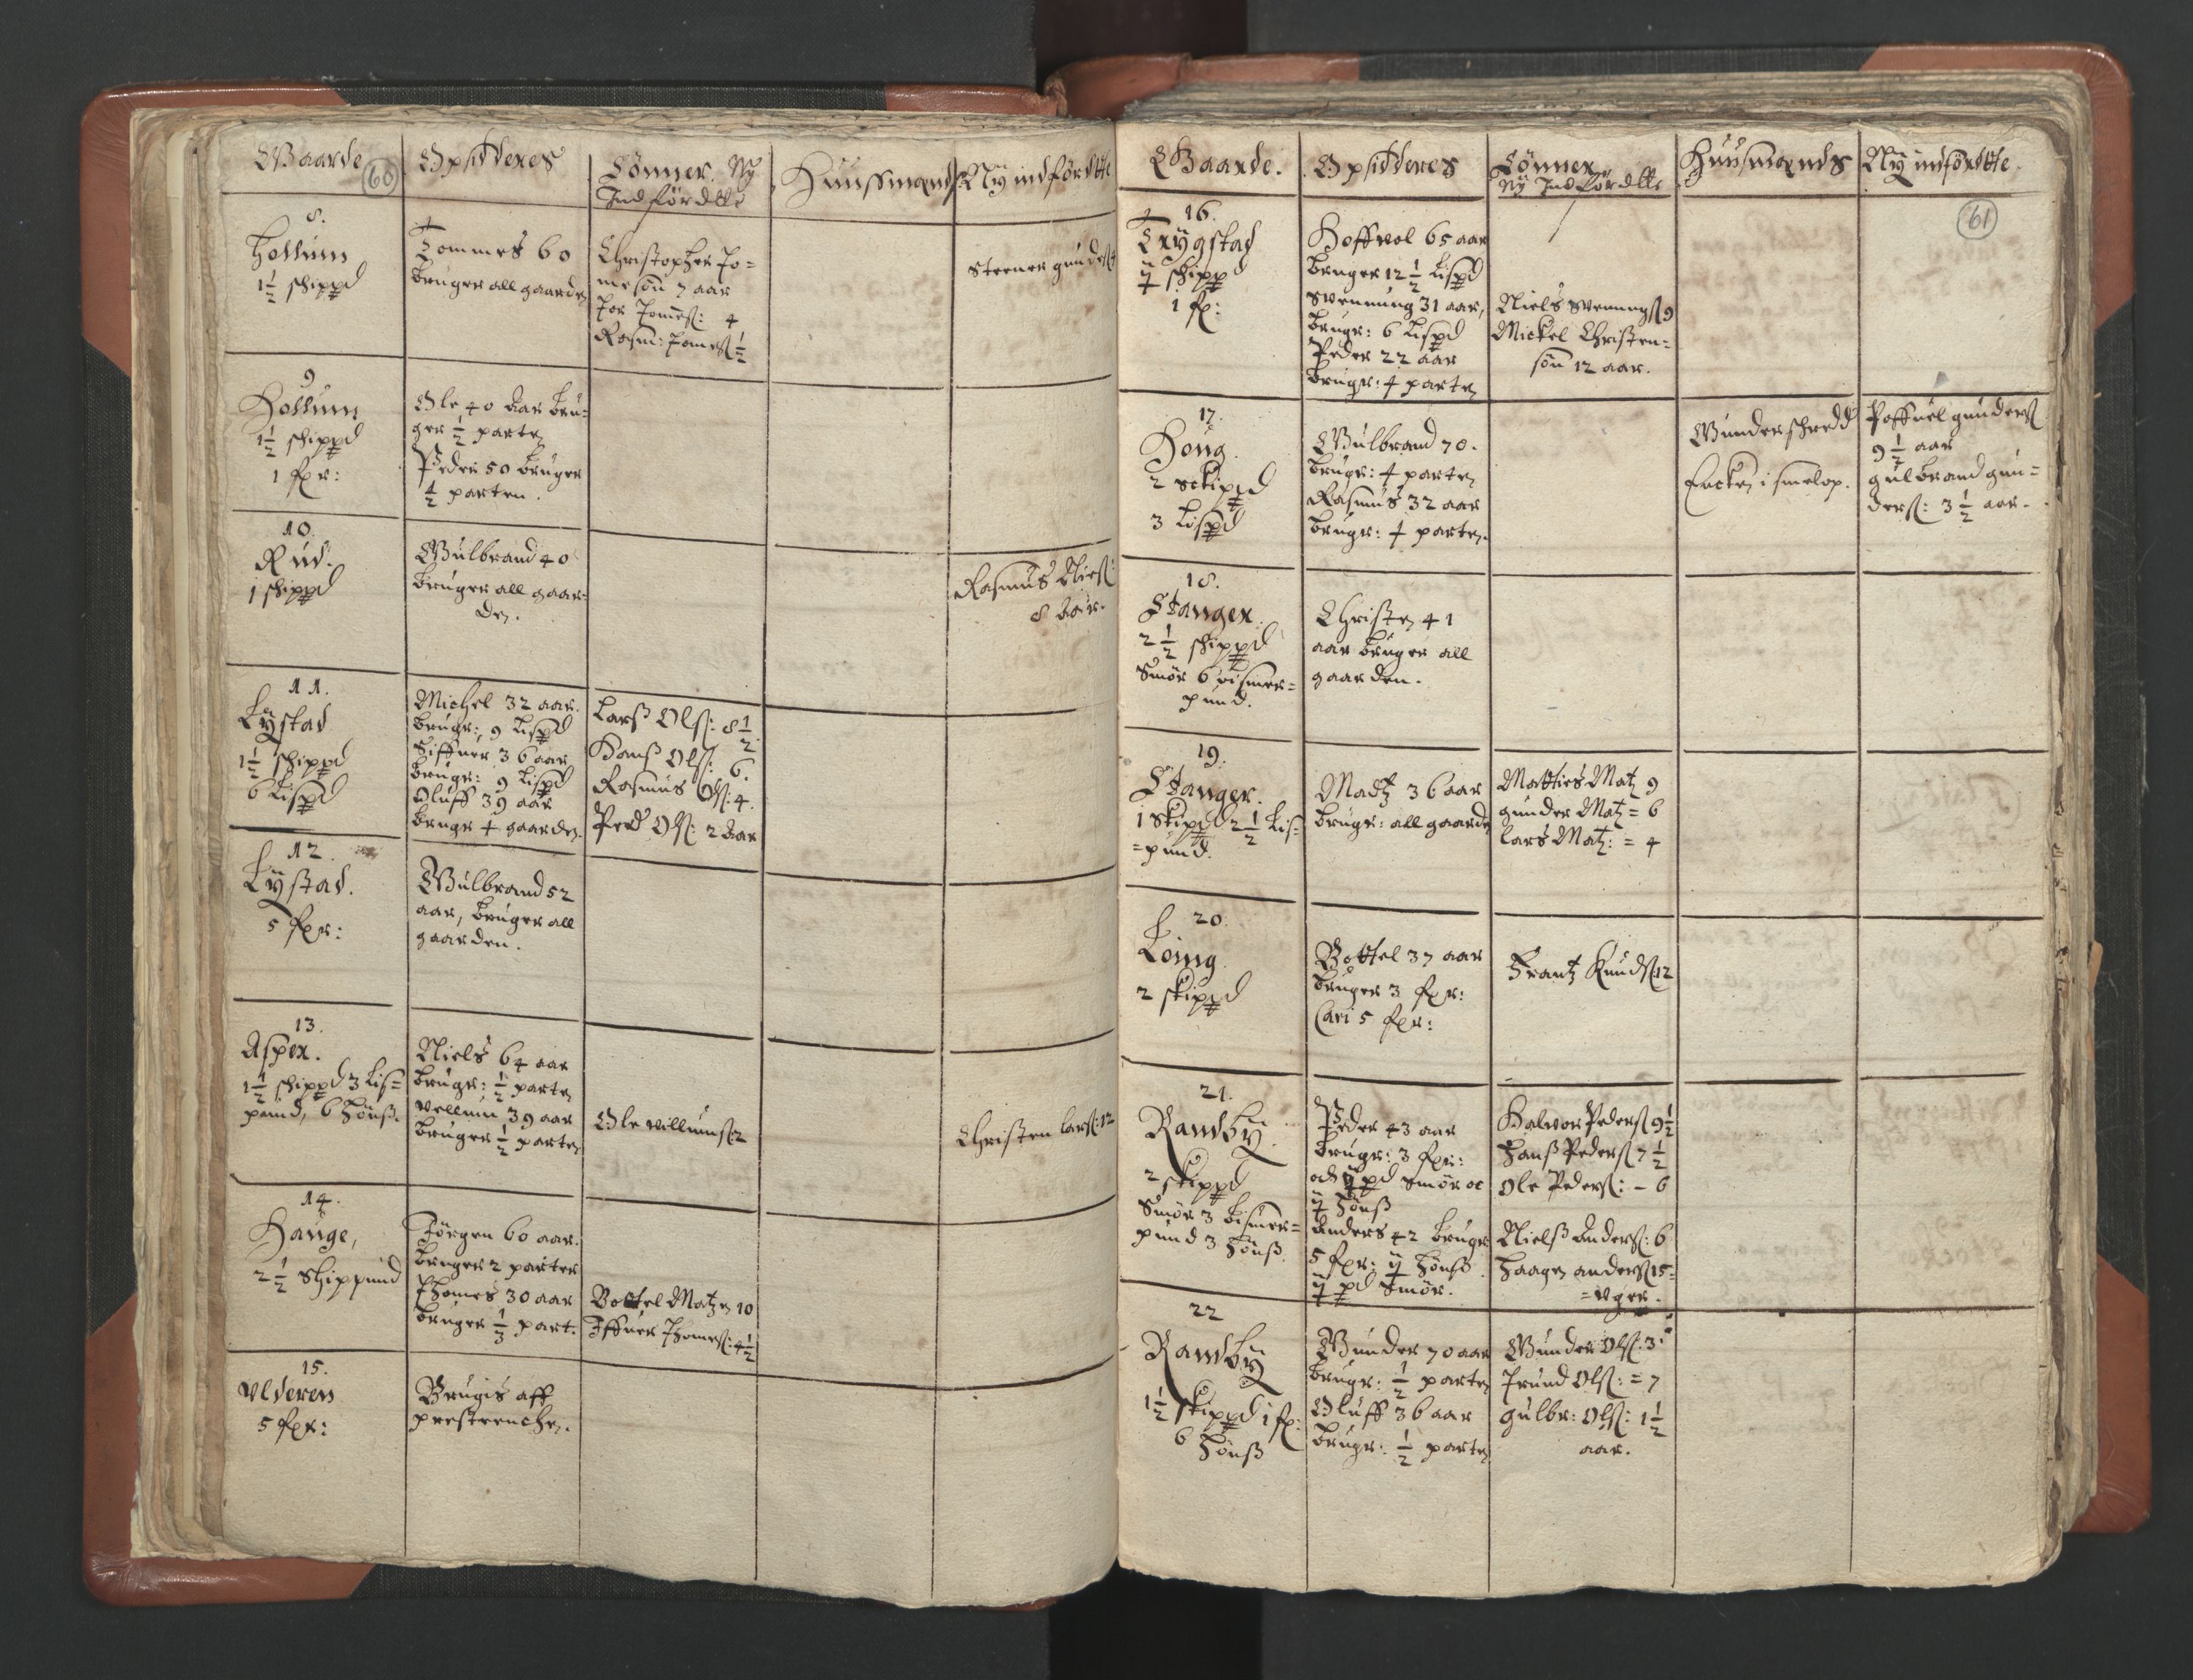 Gaarde
60
Opsidderes
Sönner. Ny
Indfördtte
Huussmends
Ny indfördtte
8.
Hollum
1½ schippd
Tommes 60
bruger all gaarden
Christopher To=
meson 7 aar
Tor Tomeß: 4
Rasm: Tomeß ½
Steener
9
Hollum
1½ schippd
1 fxr:
Ole 40 aar bru=
ger ½ parten
Peder 50 bruger
½ parten.
10.
Rud.
1 schippd
Gulbrand 40
bruger all gaar=
den.
Rasmus Nielß:
8 aar.
11.
Lystad
1½ schippd
6 Lispd
Michel 32 aar.
brugr: 9 Lispd
Siffuer 36 aar
brugr: 9 Lispd
Oluff 39 aar
brugr gaarden.
Larß Olß: 8½
Hanß Olß: 6.
Rasmus Olß: 4.
Ped Olß: 2 aar
12.
Lystad.
5 fxr:
Gulbrand 52
aar, bruger all
gaarden.
13.
Asper.
1½ schippd 3 Lis=
pund, 6 Hönß.
Niels 64 aar
brugr: ½ parten
Vellum 39 aar
bruger ½ parten
Ole villumß: 2
Christen larß: 12
14.
Hauge,
2½ Schippund
Jörgen 60 aar.
bruger 2 parter
Thomes 30 aar
bruger ⅓ part.
Bottel Matzen 10
Iffuer Thomeß: 4½
15.
Vlderen
5 fxr:
Brugis aff
presteenchen.
Gaarde.
Opsidderes
Sönner
Ny Indfördtte
Huusmends
Ny indfördtte.
61
16.
Trygstad
ij schippd
1 fx:
Roffuel 65 aar
bruger 12½ Lispd
Svennung 31 aar,
brugr: 6 Lispd
Peder 22 aar
brugr: 4 parten
Niels Svennungß 9
Mickel Christen=
sön 12 aar.
17.
Hong.
2 sckippd
3 Lispd
Gulbrand 70.
brugr: 4 parten
Rasmus 32 aar
brugr: 4 parten.
Gunder schredd
i smelop.
Poffuel gunderß
9½ aar
gulbrand gun=
derß: 3½ aar.
18.
Stanger.
2½ schippd
Smör 6 bismer=
pund.
Christen 41
aar bruger all
gaarden.
19.
Stanger.
1 Skippd 2½ Lis=
=pund.
Madtz 36 aar
brugr: all gaarden
Matties Matz 9
gunder Matz = 6
lars Matz: = 4
20.
Löing
2 skippd
Bottel 37 aar
bruger 3 fxr:
Cari 5 fxr:
Frantz Knudß: 12
21.
Randby.
2 skippd
Smör 3 bismer=
pund 3 Hönß.
Peder 43 aar
brugr: 3 fxr:
och ij pd Smör oc
ij Hönß
Anders 42 brugr
5 fxr: ij Hönß
ij pd Smör.
Halvor Pederß 9½
Hanß Pederß 7½
Ole Pederß: - 6
Nielß Anderß: 6
Haagen anderß 15=
=vger.
22
Randby
1½ skippd 1 fx:
6 Hönß
Gunder 70 aar
brugr: ½ parten
Oluff 36 aar
brugr: ½ parten
Gunder Olß: 3
Trund Olß: = 7
gulbr: Olß: 1½
aar.